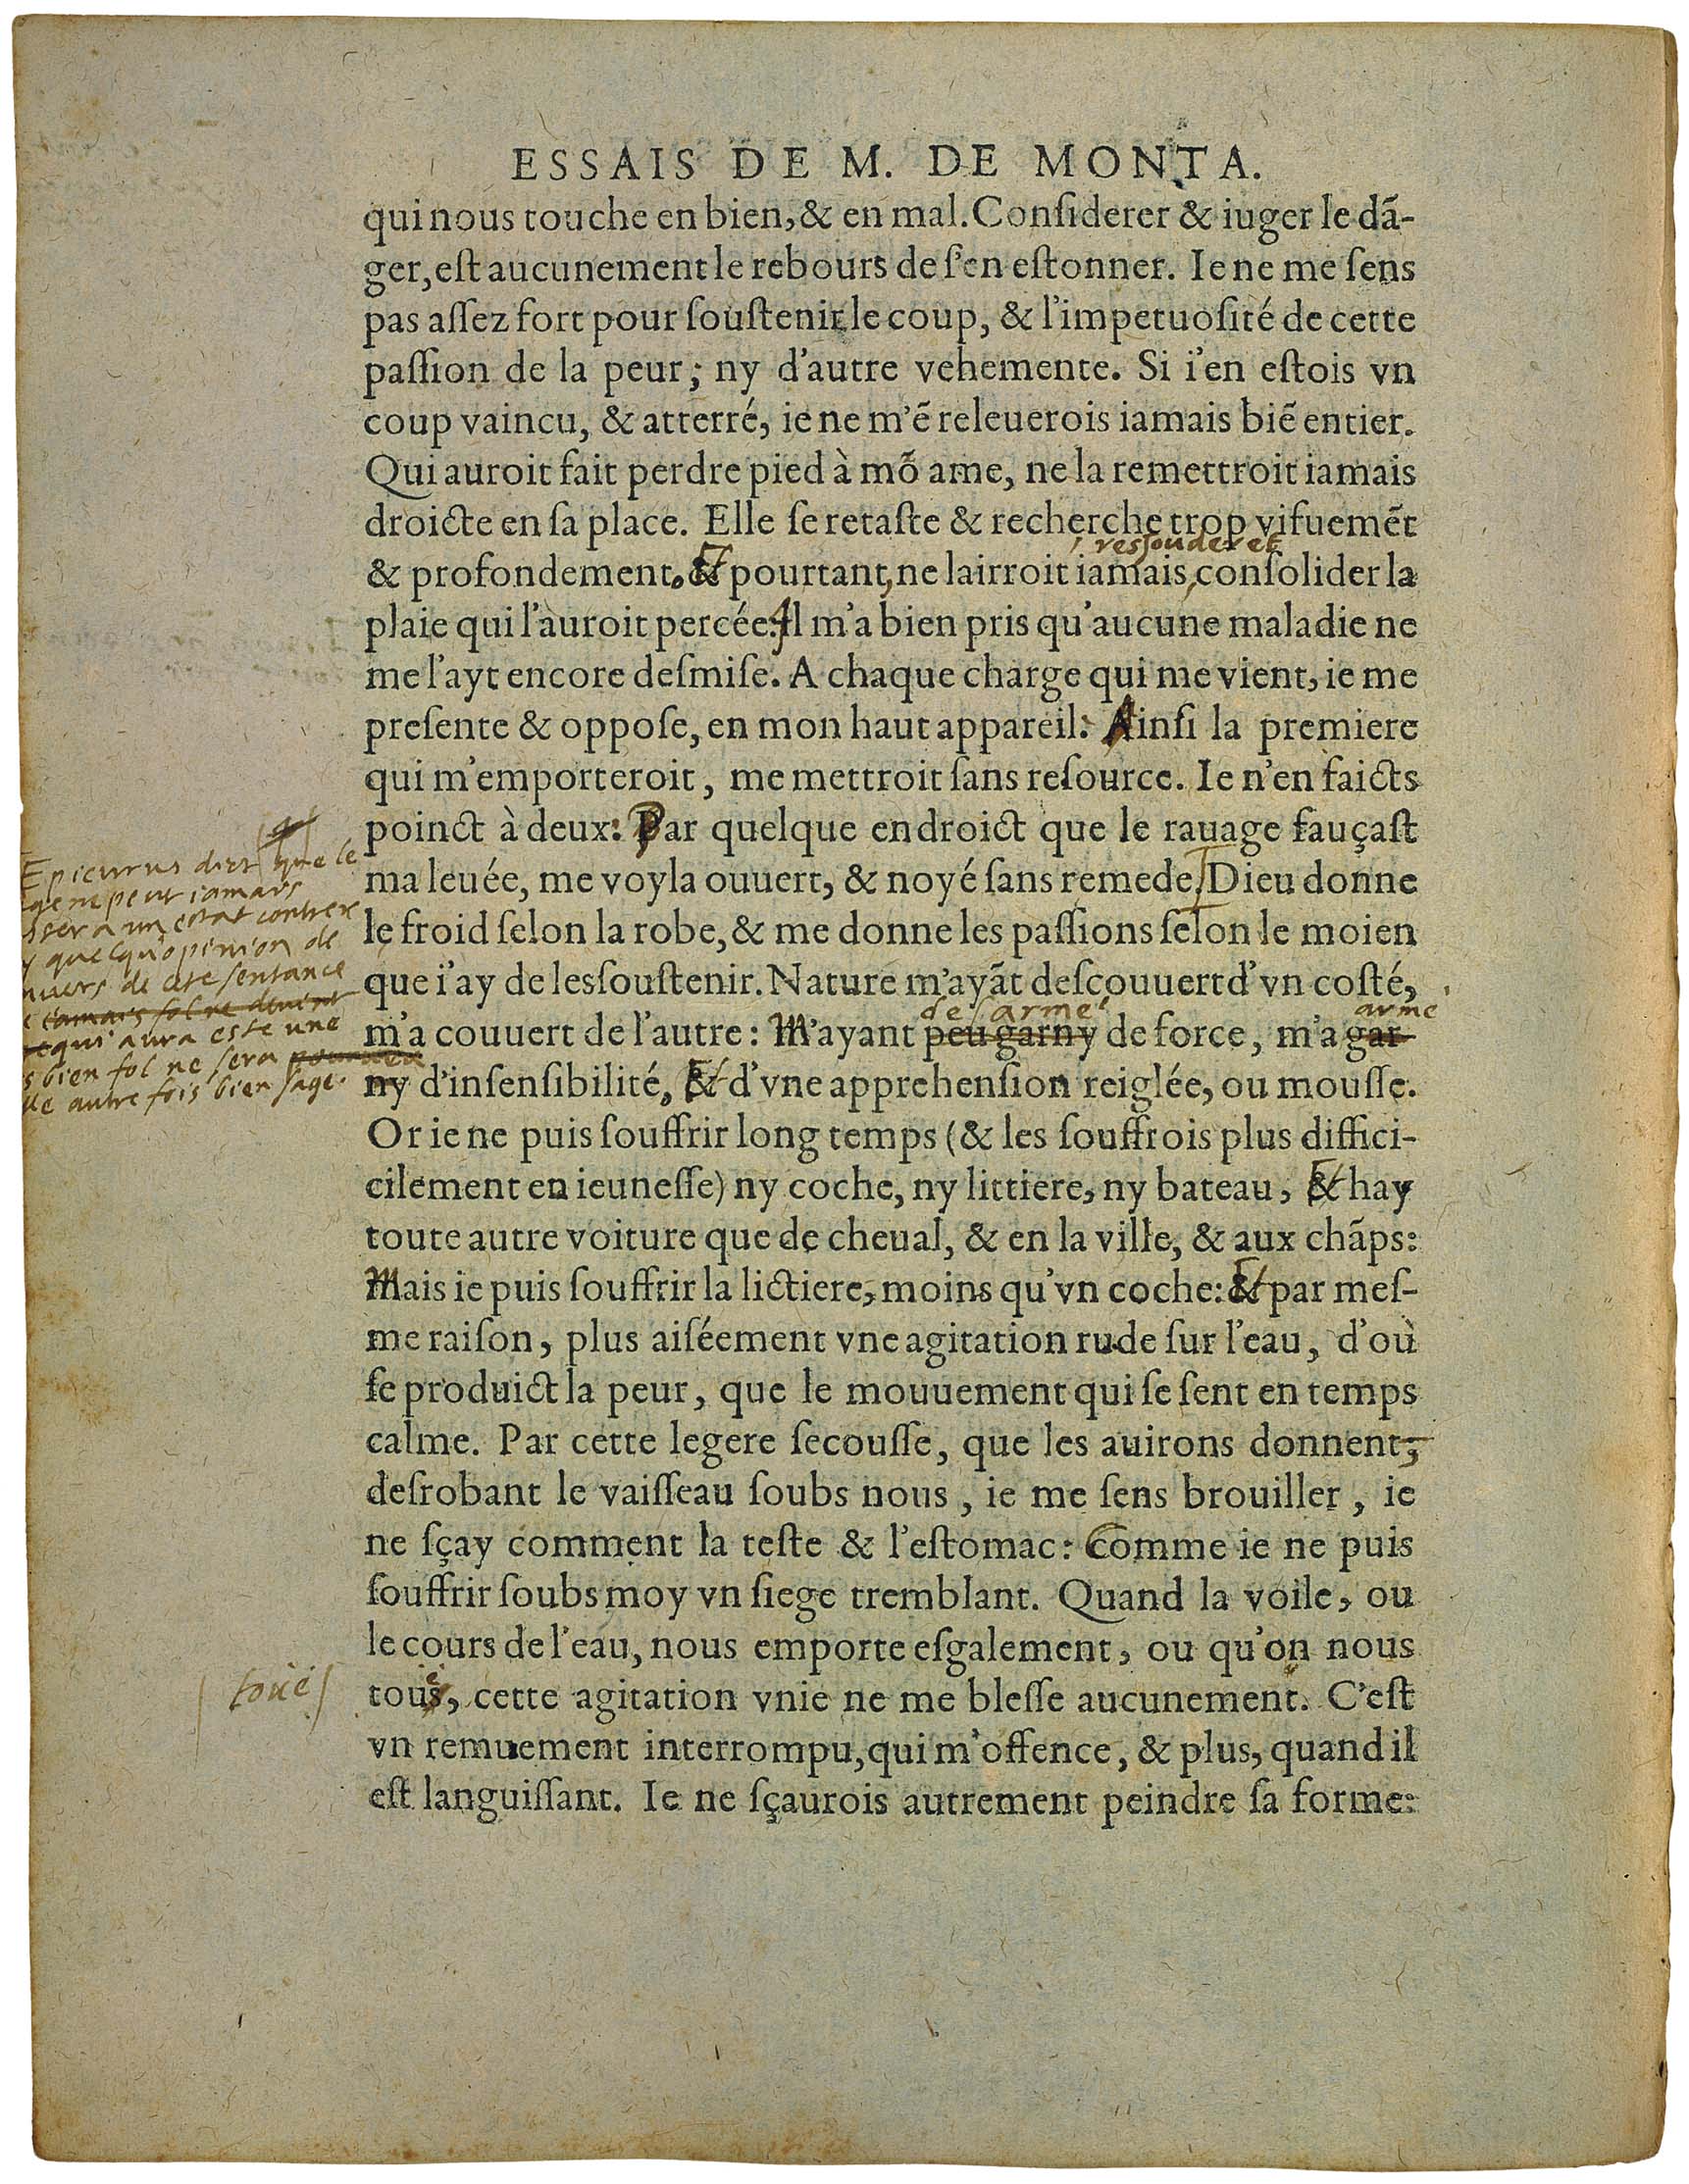 ESSAIS DE M. DE MONTA.
qui nous touche en bien, & en mal. Conſiderer & iuger le dã-
ger, eſt aucunement le rebours de ſ'en eſtonner. Ie ne me ſens
pas aſſez fort pour ſouſtenir le coup, & l'impetuoſité de cette
paſſion de la peur; ny d'autre vehemente. Si i'en eſtois vn
coup vaincu, & atterré, ie ne m'ẽ releuerois iamais biẽ entier.
Qui auroit fait perdre pied à mõ ame, ne la remettroit iamais
droicte en ſa place. Elle ſe retaſte & recherche trop vifuemẽt
, ressouder et
& profondement. Et pourtant, ne lairroit iamais, conſolider la
plaie qui l'auroit percée. Il m'a bien pris qu'aucune maladie ne
me l'ayt encore deſmiſe. A chaque charge qui me vient, ie me
preſente & oppoſe, en mon haut appareil. Ainſi la premiere
qui m'emporteroit, me mettroit ſans reſource. Ie n'en faicts
poinct à deux: Par quelque endroict que le rauage fauçaſt
ma leuée, me voyla ouuert, & noyé ſans remede. Dieu donne
le froid ſelon la robe, & me donne les paſſions ſelon le moien
que i'ay de les ſouſtenir. Nature m'ayãt deſcouuert d'vn coſté,
desarmé arme
m'a couuert de l'autre: M'ayant peu garny de force, m'a gar-
ny d'inſenſibilité, Et d'vne apprehenſion reiglée, ou mouſſe.
Or ie ne puis ſouffrir long temps (& les ſouffrois plus diffici-
cilement en ieuneſſe) ny coche, ny littiere, ny bateau, Et hay
toute autre voiture que de cheual, & en la ville, & aux chãps:
Mais ie puis ſouffrir la lictiere, moins qu'vn coche: Et par meſ-
me raiſon, plus aiſéement vne agitation rude ſur l'eau, d'où
ſe produict la peur, que le mouuement qui ſe ſent en temps
calme. Par cette legere ſecouſſe, que les auirons donnent,
deſrobant le vaiſſeau ſoubs nous, ie me ſens brouiller, ie
ne ſçay comment la teſte & l'eſtomac: Comme ie ne puis
ſouffrir ſoubs moy vn ſiege tremblant. Quand la voile, ou
le cours de l'eau, nous emporte eſgalement, ou qu'on nous
toue, cette agitation vnie ne me bleſſe aucunement. C'eſt
vn remuement interrompu, qui m'offence, & plus, quand il
eſt languiſſant. Ie ne ſçaurois autrement peindre ſa forme:
Epicurus dict que le
ge ne peut iamais
sser a un estat contrere
quelqu'opinion de
nuers de cete sentance
iamais fol ne deuient
qui aura este une
s bien fol ne sera
lle autre fois bien sage.
toüe